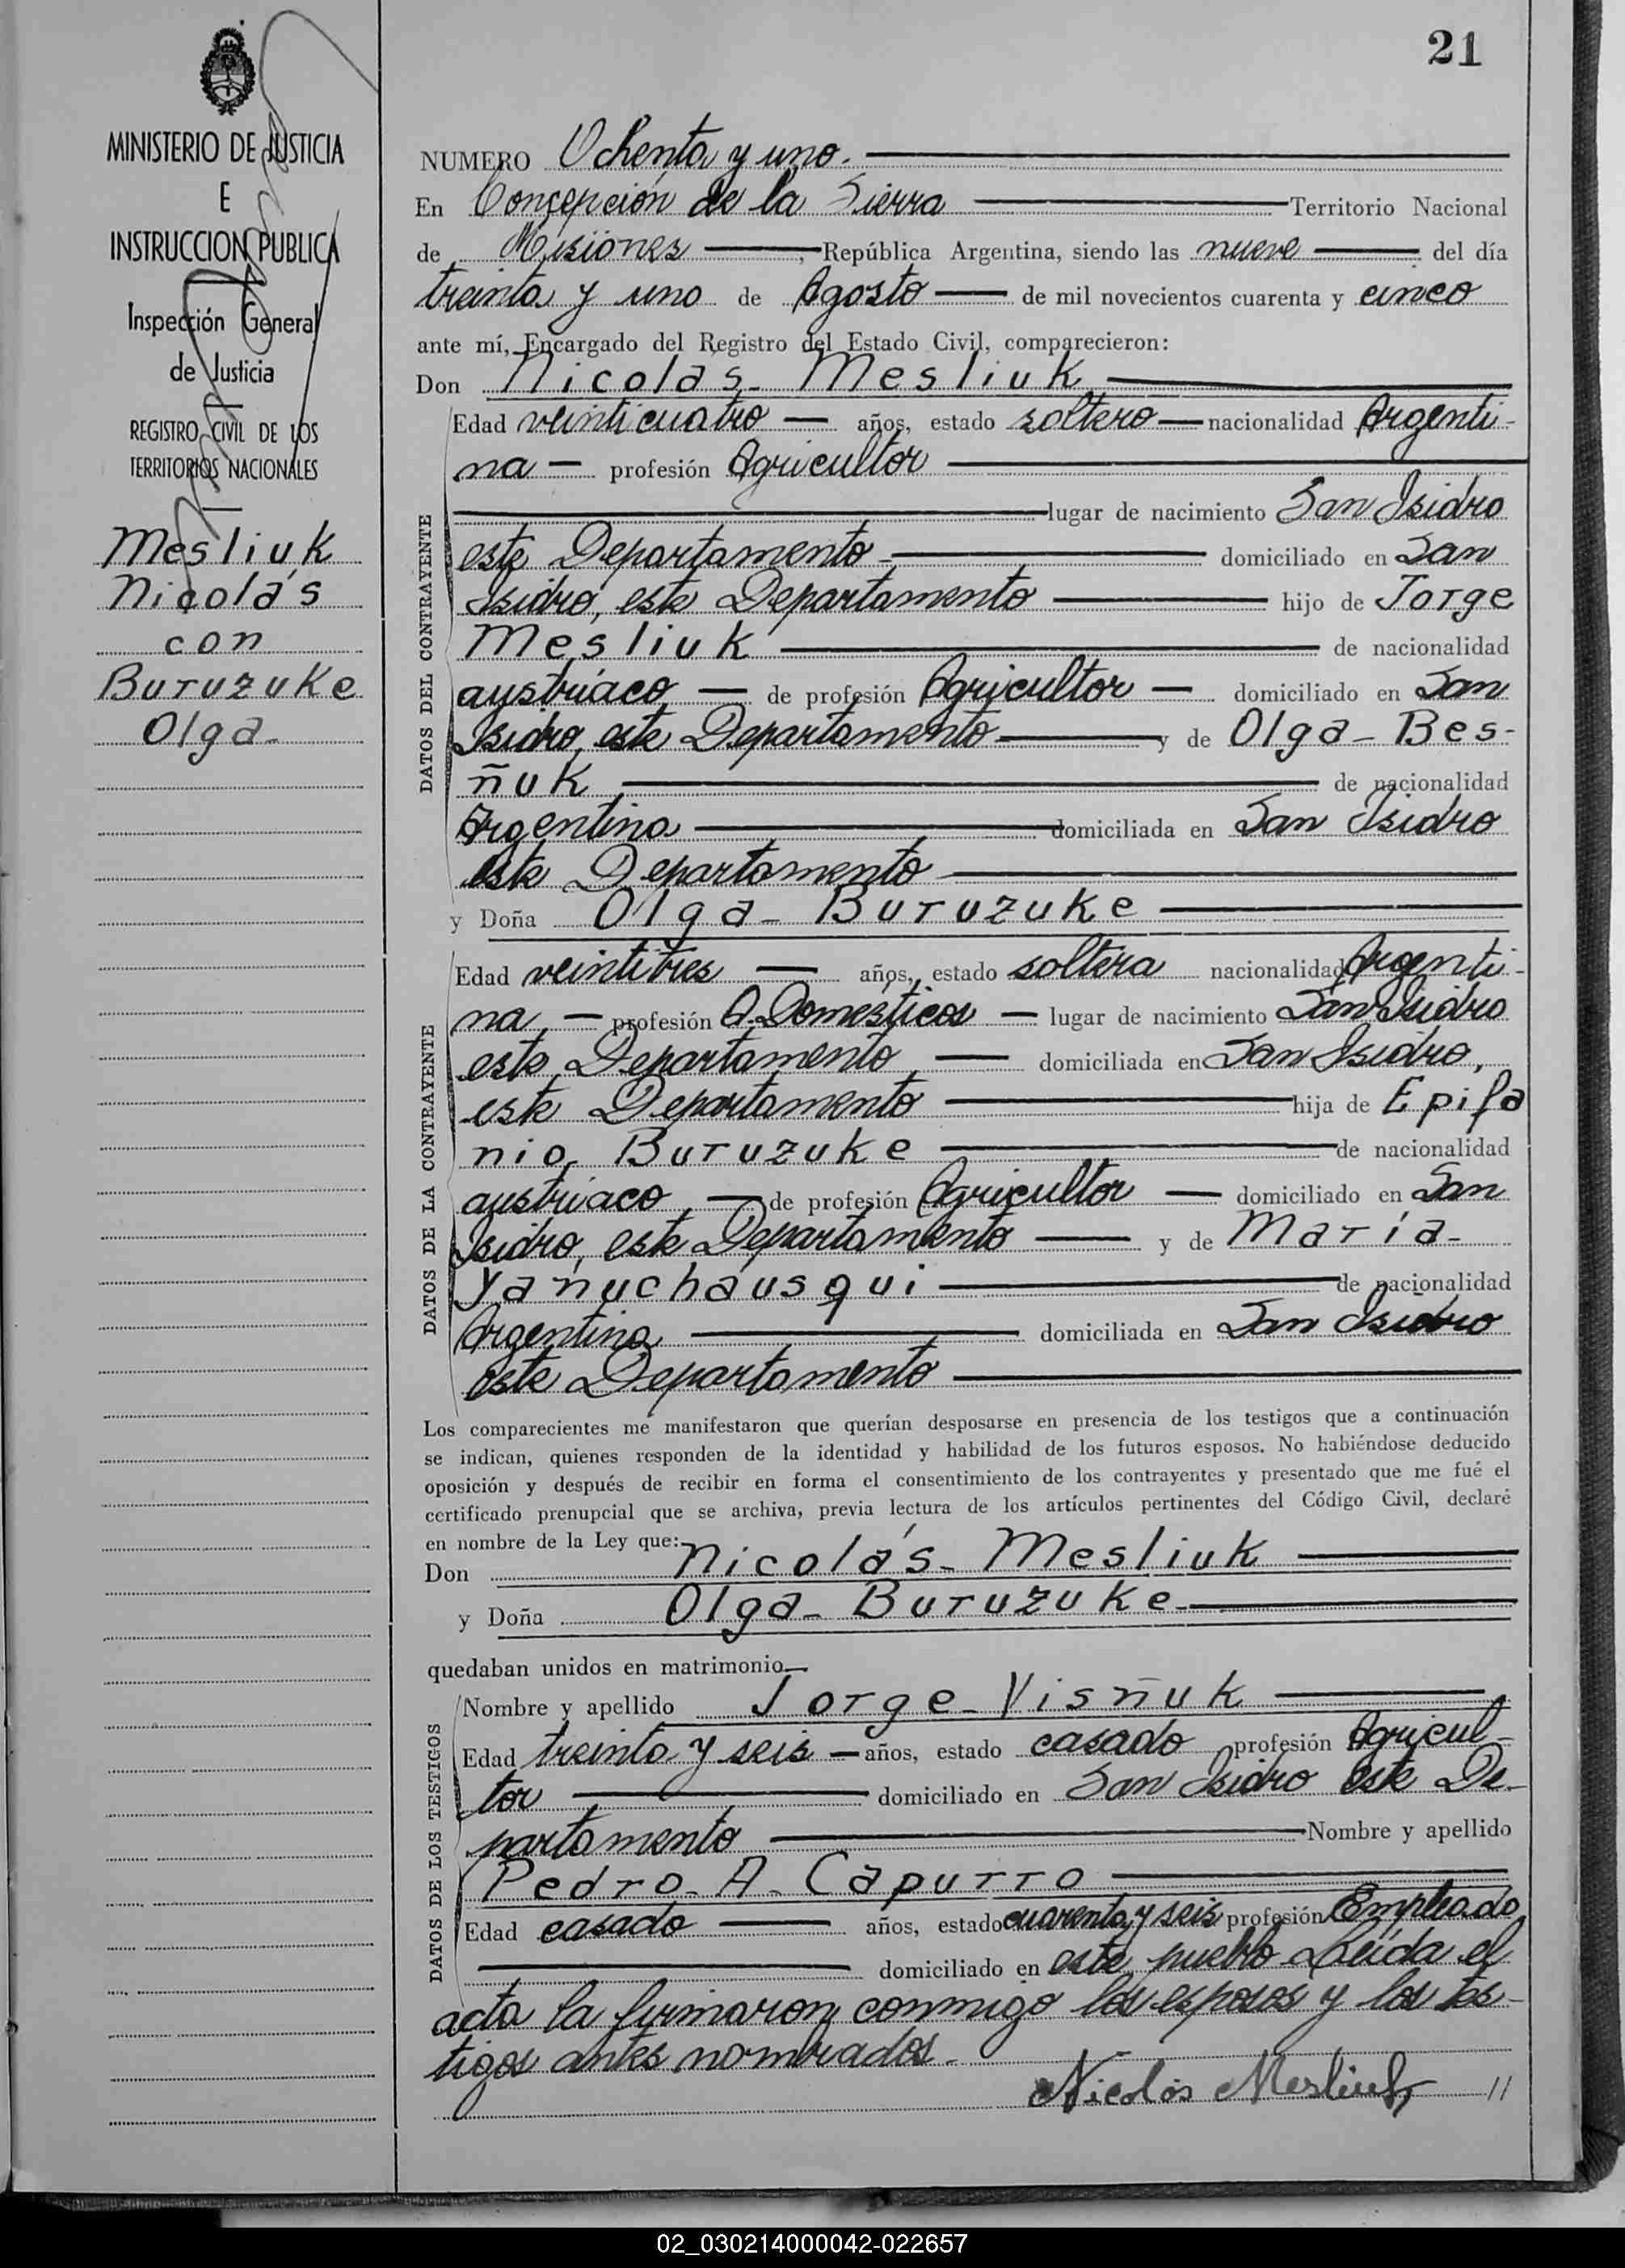 21
MINISTERIO DE JUSTICIA
E
INSTRUCCION PUBLICA
Inspección General
de Justicia
REGISTRO CIVIL DE LOS
TERRITORIOS NACIONALES
Mesliuk
Nicolás
con
Buruzuke
Olga-
NUMERO Ochenta y uno.
En Concepción de la Sierra Territorio Nacional
de Misiones, República Argentina, siendo las nueve del día
treinta y uno de Agosto de mil novecientos cuarenta y cinco
ante mí, Encargado del Registro del Estado Civil, comparecieron:
Don Nicolás- Mesliuk
DATOS DEL CONTRAYENTE
Edad veinticuatro años, estado soltero nacionalidad Argenti-
na profesión Agricultor
lugar de nacimiento San Isidro
este Departamento domiciliado en San
Isidro, este Departamento hijo de Jorge
Mesliuk de nacionalidad
austríaco de profesión Agricultor domiciliado en San
Isidro, este Departamento y de Olga- Bes-
ñuk de nacionalidad
Argentina domiciliada en San Isidro
este Departamento
y Doña Olga- Buruzuke
DATOS DE LA CONTRAYENTE
Edad veintitres años, estado soltera nacionalidad Argenti-
na, profesión Q. Domésticos lugar de nacimiento San Isidro
este Departamento domiciliada en San Isidro,
este Departamento hija de Epifa
nio, Buruzuke de nacionalidad
austríaco, de profesión Agricultor domiciliado en San
Isidro, este Departamento y de María-
Yanuchausqui de nacionalidad
Argentina domiciliada en San Isidro
este Departamento
Los comparecientes me manifestaron que querían desposarse en presencia de los testigos que a continuación
se indican, quienes responden de la identidad y habilidad de los futuros esposos. No habiéndose deducido
oposición y después de recibir en forma el consentimiento de los contrayentes y presentado que me fué el
certificado prenupcial que se archiva, previa lectura de los artículos pertinentes del Código Civil, declaré
en nombre de la Ley que:
Don Nicolás- Mesliuk
y Doña Olga- Buruzuke-
quedaban unidos en matrimonio
DATOS DE LOS TESTIGOS
Nombre y apellido Jorge- Visñuk
Edad treinta y seis años, estado casado profesión Agricul-
tor domiciliado en San Isidro este De-
partamento Nombre y apellido
Pedro- A- Capurro
Edad casado años, estado cuarenta y seis profesión Empleado
domiciliado en este pueblo Leída el
acta la firmaron conmigo los esposos y los tes-
tigos antes nombrados.
Nicolás Mesliuk //
02_030214000042-022657